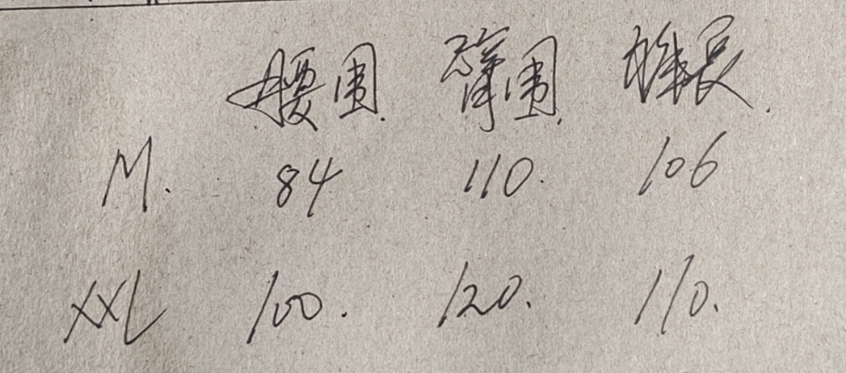 腰围 臀围 裤长
M. 84 110. 106
XXL 100. 120. 110.